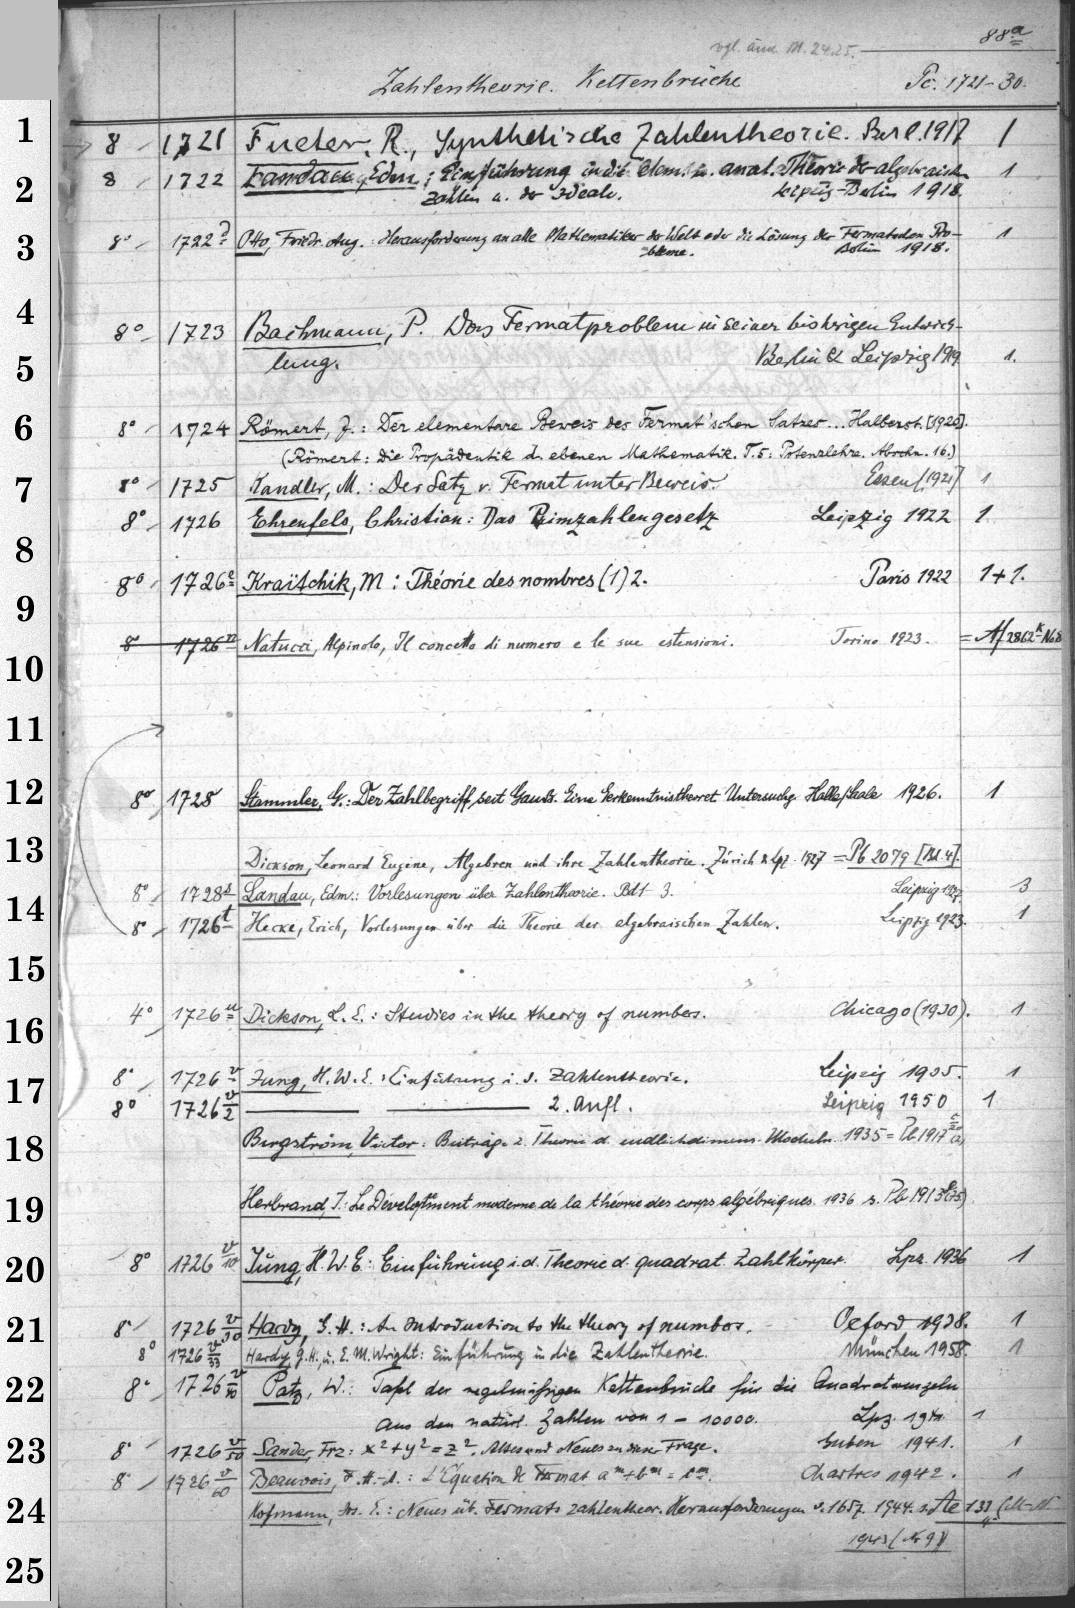 88a
vgl. auch M. 24.25.
Zahlentheorie. Kettenbrüche Pc. 1721-30.
1
8 1721 Fueter, R., Synthetische Zahlentheorie. Berl. 1917 1
2
8 1722 Landau, Edm.: Einführung in die elem. u. anal. Theorie der algebraischen 1
Zahlen u. der Ideale. Leipzig-Berlin 1918.
3
8° 1722 Otto, Friedr. Aug.: Herausforderung an alle Mathematiker der Welt oder die Lösung des Fermatschen Pro- 1
bleme. Berlin 1918.
4
8° 1723 Bachmann, P. Das Fermatproblem in seiner bisherigen Entwick-
5
lung. Berlin & Leipzig 1919. 1.
6
8° 1724 Römert, J.: Der elementare Beweis des Fermat'schen Satzes... Halberst. [1920].
(Römert: Die Propädeutik d. ebenen Mathematik. T. 5: Potenzlehre. Abschn. 16.)
7
8° 1725 Kandler, M.: Der Satz v. Fermat unter Beweis. Essen [1921] 1
8° 1726 Ehrenfels, Christian: Das Primzahlengesetz Leipzig 1922 1.
8
8° 1726e Kraïtchik, M: Théorie des nombres (1) 2. Paris 1922 1+1.
9
8 1726n Natucci, Alpinolo, Il concetto di numero e le sue estensioni. Torino 1923. = Af 2862k-No8
10
11
12
8° 1728 Stammler, G.: Der Zahlbegriff seit Gauß. Eine Erkenntnistheoret. Untersuchg. Halle/Saale 1926. 1
13
Dickson, Leonard Eugene, Algebren und ihre Zahlentheorie. Zürich & Lpz. 1927 = Pb 2079 [Bd. 4].
8° 1728s Landau, Edm.: Vorlesungen über Zahlentheorie. Bd 1-3. Leipzig 1927. 3
14
8° 1726t Hecke, Erich, Vorlesungen über die Theorie der algebraischen Zahlen. Leipzig 1923. 1
15
4° 1726u Dickson, L. E.: Studies in the theory of numbers. Chicago (1930). 1
16
8° 1726v Jung, H. W. E.: Einführung i. d. Zahlentheorie. Leipzig 1935. 1
17
8° 1726v/2 2. Aufl. Leipzig 1950 1
18
Bergström, Viktor: Beiträge z. Theorie d. endlichdimens. Moduln. 1935 = Pb 1917
19
Herbrand, J.: Le Développement moderne de la théorie des corps algébriques. 1936 s. Pb 1913 (75)
20
8° 1726v/10 Jung, H. W. E: Einführung i. d. Theorie d. quadrat. Zahlkörper. Lpz. 1936 1
21
8° 1726v/30 Hardy, G. H.: An Introduction to the theory of numbers. Oxford 1938. 1
8° 1726v/33 Hardy, G. H., u. E. M. Wright: Einführung in die Zahlentheorie. München 1958. 1
22
8° 1726v/40 Patz, W.: Tafel der regelmäßigen Kettenbrüche für die Quadratwurzeln
aus den natürl. Zahlen von 1 - 10000. Lpz. 1941 1
23
8° 1726v/50 Sander, Frz: x²+y²=z². Altes und Neues zu dieser Frage. Guben 1941. 1
8° 1726v/60 Beauvois, F. H.-A.: L'Équation de Fermat aᵐ+bᵐ=cᵐ. Chartres 1942. 1
24
Hofmann, Jos. E.: Neues üb. Fermats zahlentheor. Herausforderungen v. 1657. 1944. s. Ae 133 (M-N
1943 (Nr 9))
25